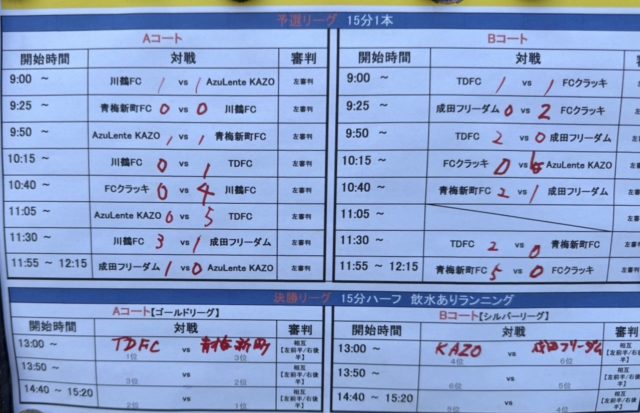 予選リーグ 15分1本
Aコート
開始時間 対戦 審判
9:00 ～ 川鶴FC 1 vs 1 AzuLente KAZO 左審判
9:25 ～ 青梅新町FC 0 vs 0 川鶴FC 左審判
9:50 ～ AzuLente KAZO 1 vs 1 青梅新町FC 左審判
10:15 ～ 川鶴FC 0 vs 1 TDFC 左審判
10:40 ～ FCクラッキ 0 vs 4 川鶴FC 左審判
11:05 ～ AzuLente KAZO 0 vs 5 TDFC 左審判
11:30 ～ 川鶴FC 3 vs 1 成田フリーダム 左審判
11:55 ～ 12:15 成田フリーダム 1 vs 0 AzuLente KAZO 左審判
Bコート
開始時間 対戦 審判
9:00 ～ TDFC 1 vs 1 FCクラッキ 左審判
9:25 ～ FCクラッキ 0 vs 2 成田フリーダム 左審判
9:50 ～ TDFC 2 vs 0 成田フリーダム 左審判
10:15 ～ FCクラッキ 0 vs AzuLente KAZO 左審判
10:40 ～ 青梅新町FC 2 vs 1 成田フリーダム 左審判
11:05 ～
11:30 ～ TDFC 2 vs 0 青梅新町FC 左審判
11:55 ～ 12:15 青梅新町FC 5 vs 0 FCクラッキ 左審判
決勝リーグ 15分ハーフ 飲水ありランニング
Aコート【ゴールドリーグ】
開始時間 対戦 審判
13:00 ～ TDFC vs 青梅新町 相互
1位 3位 【左前半/右後半】
13:50 ～ vs 相互
3位 2位 【左前半/右後半】
14:40 ～ 15:20 vs 相互
2位 1位 【左前半/右後
Bコート【シルバーリーグ】
開始時間 対戦 審判
13:00 ～ KAZO vs 成田フリーダム 相互
4位 6位 【左前半/右後半】
13:50 ～ vs 相互
6位 5位 【左前半/右後半】
14:40 ～ 15:20 vs 相互
5位 4位 【左前半/右後